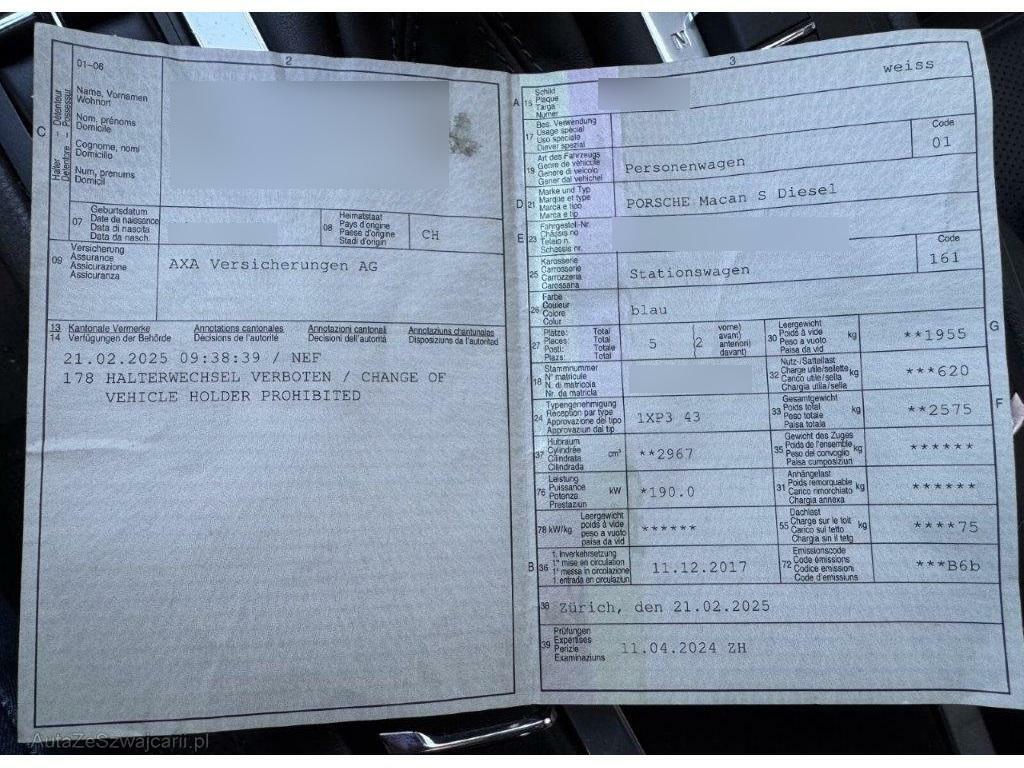 2
01-06
Name, Vornamen
Wohnort
Nom, prénoms
Domicile
Cognome, nomi
Domicilio
Num, prenums
Domicil
C
Halter – Détenteur
Detentore – Possessur
07
Geburtsdatum
Date de naissance
Data di nascita
Data da nasch.
08
Heimatstaat
Pays d'origine
Paese d'origine
Stadi d'origin
CH
09
Versicherung
Assurance
Assicurazione
Assicuranza
AXA Versicherungen AG
13 Kantonale Vermerke Annotations cantonales Annotazioni cantonali Annotaziuns chantunalas
14 Verfügungen der Behörde Décisions de l'autorité Decisioni dell'autorità Disposiziuns da l'autoritad
21.02.2025 09:38:39 / NEF
178 HALTERWECHSEL VERBOTEN / CHANGE OF
VEHICLE HOLDER PROHIBITED
3
A 15
Schild
Plaque
Targa
Numer
weiss
17
Bes. Verwendung
Usage spécial
Uso speciale
Diever spezial
Code
01
19
Art des Fahrzeugs
Genre de véhicule
Genere di veicolo
Gener dal vehichel
Personenwagen
D 21
Marke und Typ
Marque et type
Marca e tipo
Marca e tip
PORSCHE Macan S Diesel
E 23
Fahrgestell-Nr.
Châssis no
Telaio n.
Schassis nr.
25
Karosserie
Carrosserie
Carrozzeria
Carossaria
Stationswagen
Code
161
26
Farbe
Couleur
Colore
Colur
blau
27
Plätze: Total
Places: Total
Posti: Totale
Plazs: Total
5
2
vorne)
avant)
anteriori)
davant)
30
Leergewicht
Poids à vide
Peso a vuoto
Paisa da vid
kg
**1955
G
18
Stammnummer
N° matricule
N. di matricola
Nr. da matricla
32
Nutz-/Sattellast
Charge utile/sellette
Carico utile/sella
Chargia utila/sella
kg
***620
24
Typengenehmigung
Réception par type
Approvazione del tipo
Approvaziun dal tip
1XP3 43
33
Gesamtgewicht
Poids total
Peso totale
Paisa totala
kg
**2575
F
37
Hubraum
Cylindrée
Cilindrata
Cilindrada
cm³
**2967
35
Gewicht des Zuges
Poids de l'ensemble
Peso del convoglio
Paisa cumposiziun
kg
******
76
Leistung
Puissance
Potenza
Prestaziun
kW
*190.0
31
Anhängelast
Poids remorquable
Carico rimorchiato
Chargia annexa
kg
******
78 kW/kg
Leergewicht
poids à vide
peso a vuoto
paisa da vid
******
55
Dachlast
Charge sur le toit
Carico sul tetto
Chargia sin il tetg
kg
****75
B 36
1. Inverkehrsetzung
1re mise en circulation
1a messa in circolazione
1. entrada en circulaziun
11.12.2017
72
Emissionscode
Code émissions
Codice emissioni
Code d'emissiuns
***B6b
38
Zürich, den 21.02.2025
39
Prüfungen
Expertises
Perizie
Examinaziuns
11.04.2024 ZH
N
AutaZeSzwajcarii.pl